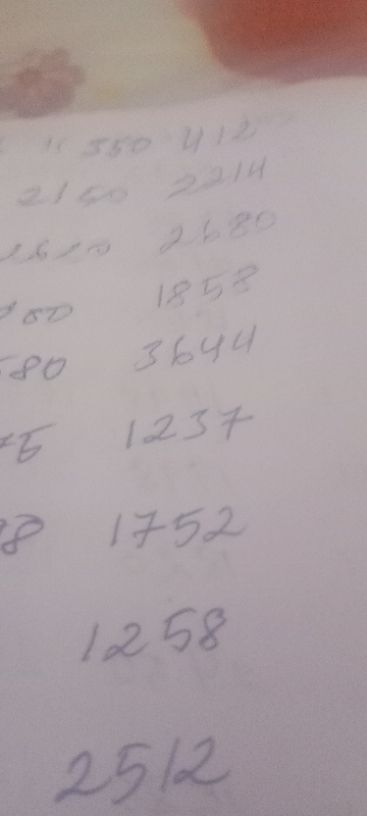 " 350 412
2150 2214
2620 2680
1858
580 3644
75 1237
98 1752
1258
2512